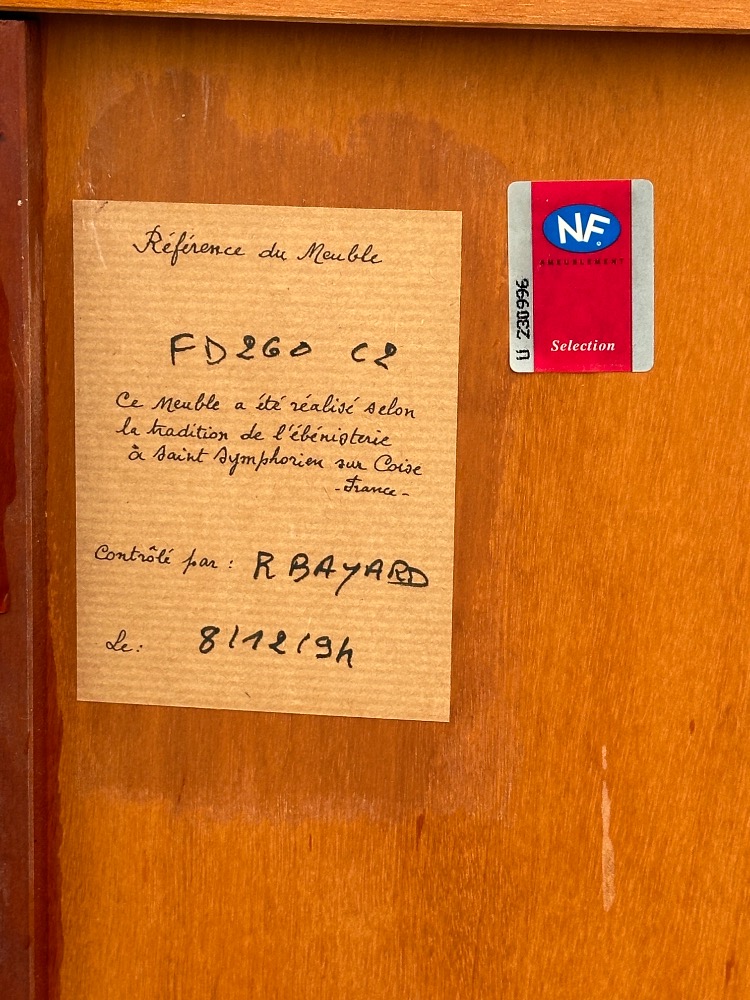 Référence du Meuble
FD260 C2
Ce Meuble a été réalisé selon
la tradition de l'ébénisterie
à Saint Symphorien sur Coise
-France-
Contrôlé par : R BAYARD
Le: 8/12/94
NF
AMEUBLEMENT
Selection